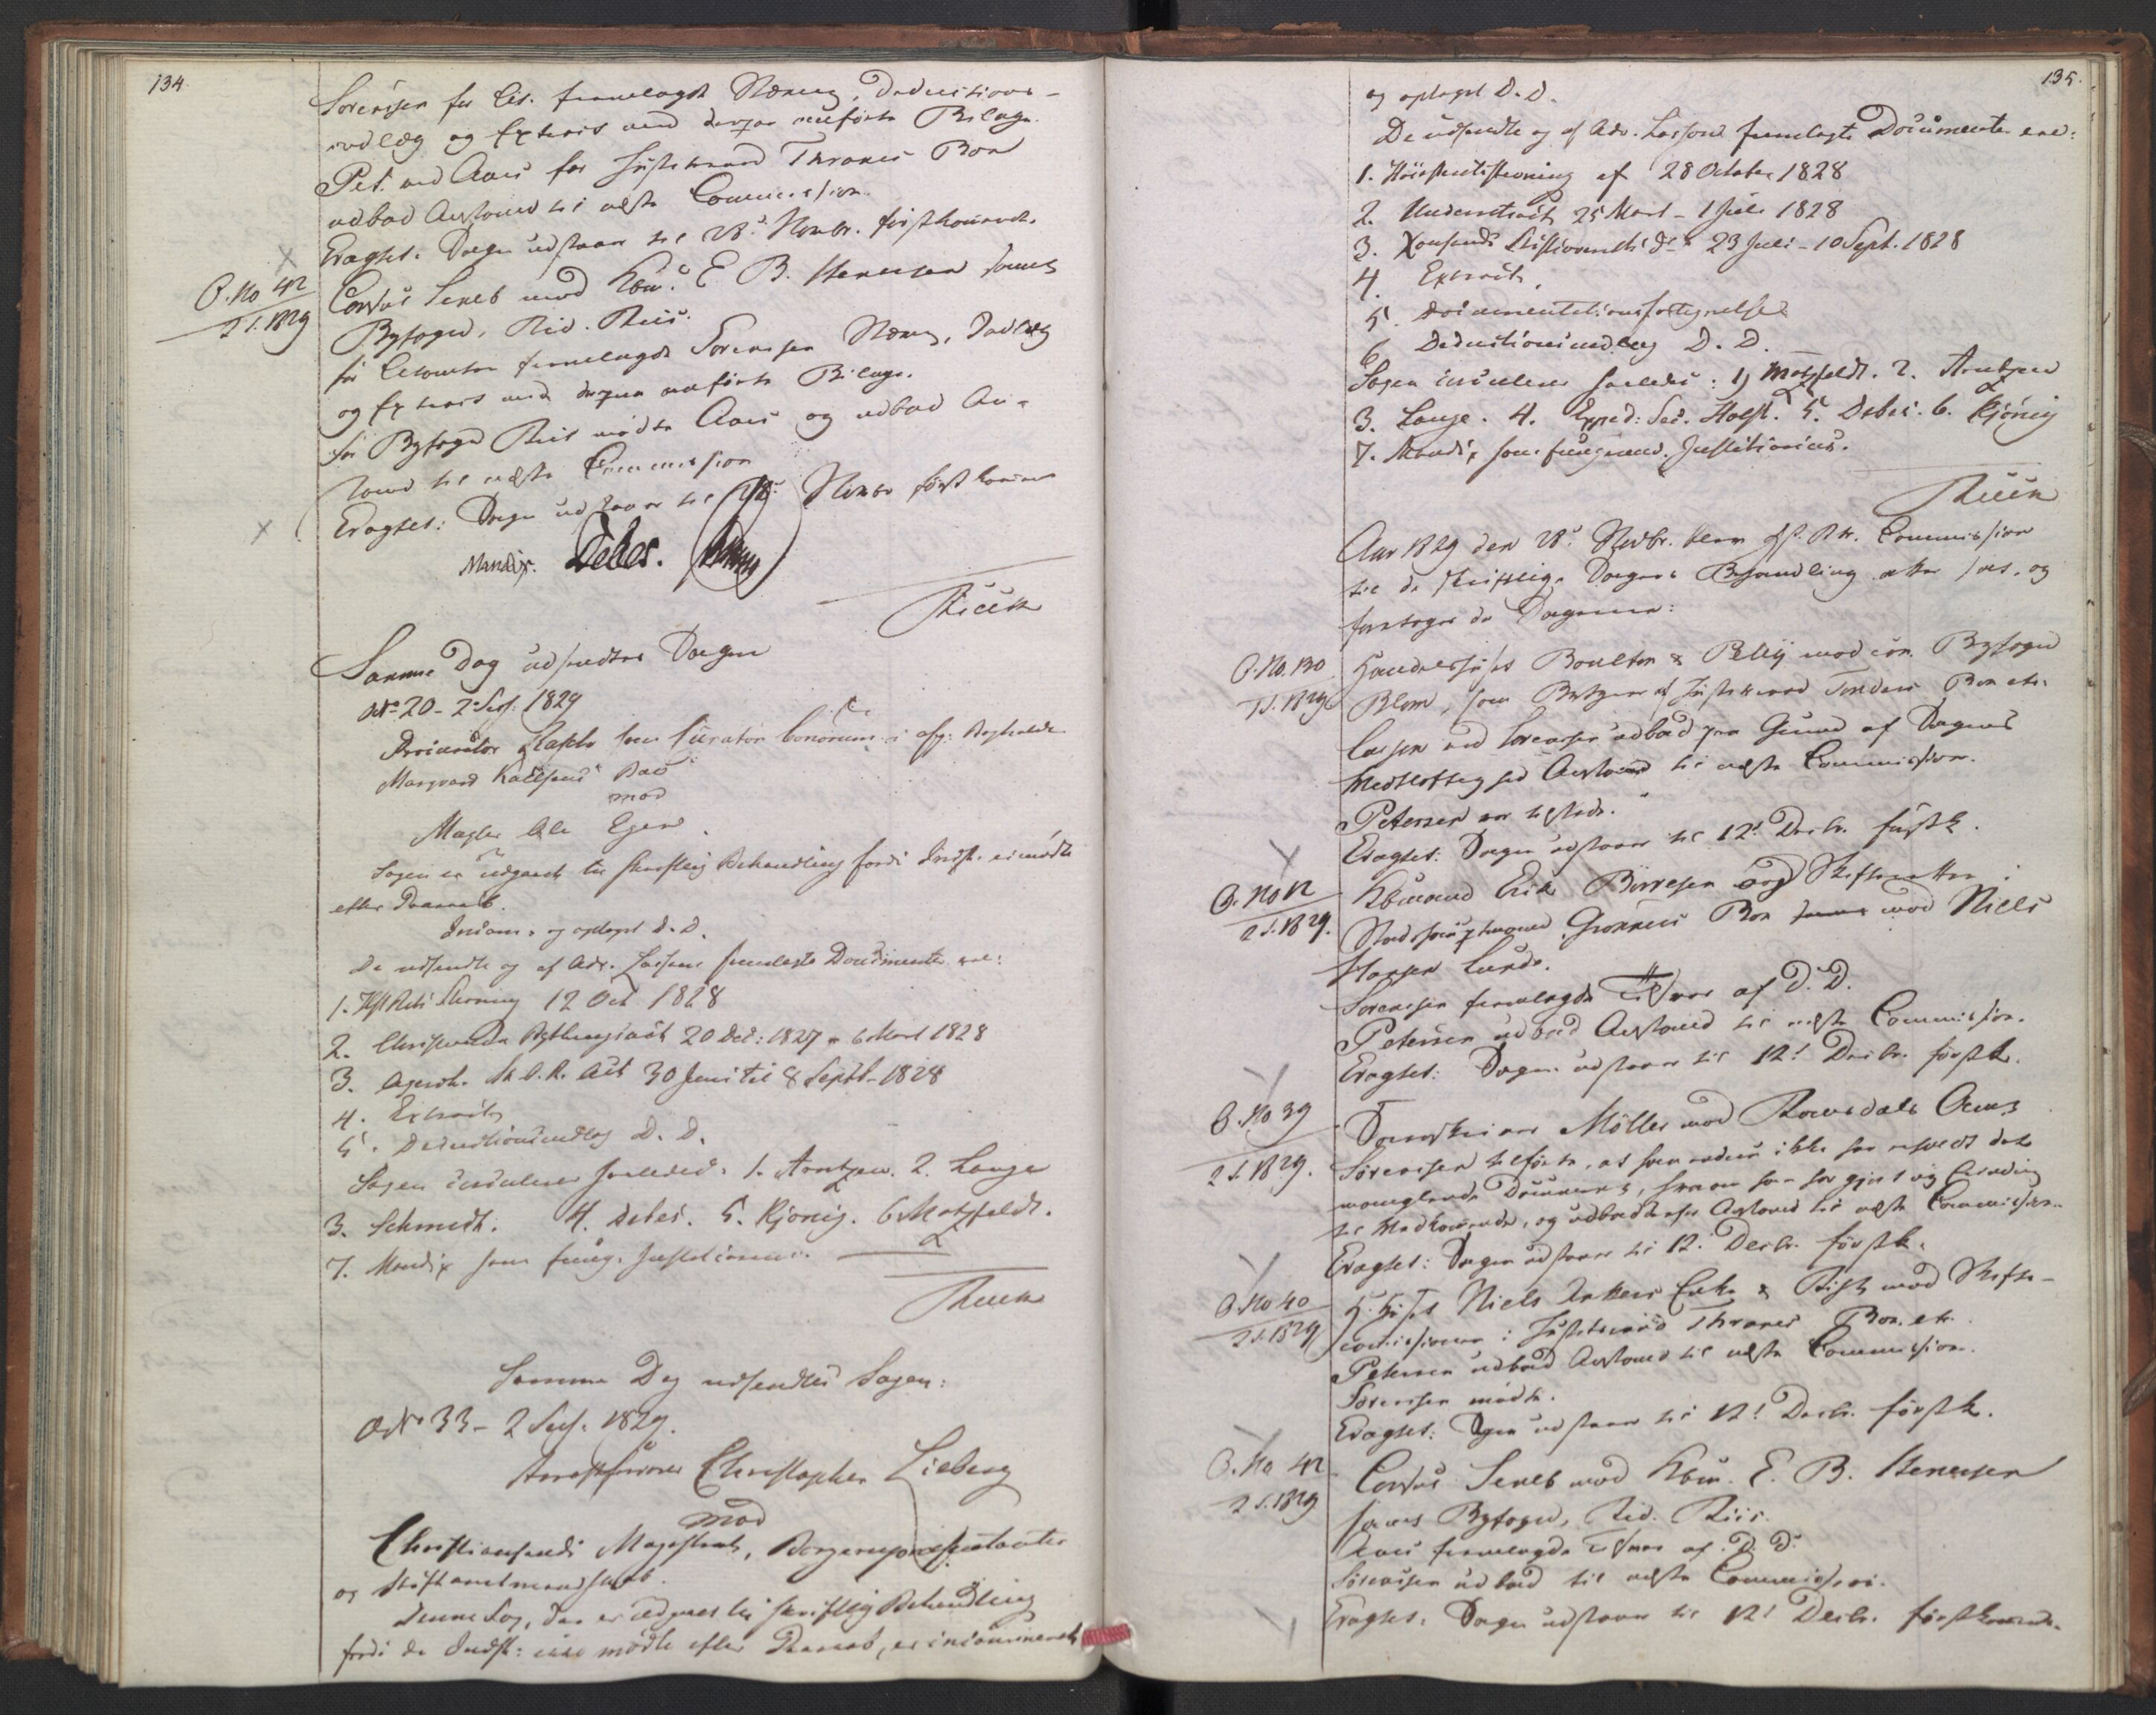 134.
Sorensen for Cit. fremlagde Stævng, Deductions-
indlæg og Extract med derpaa anførte Bilage.
Pet. ved Aars for Justitsraad Thranes Boe
udbad Anstand til næste Commission.
Eragtet: Sagen udstaaer til 28de Novbr. førstkommende.
O. No 42
2 S. 1829
Consul Jeneb mod Kbm. E. B. Stenersen samt
Byfoged, Rid. Riis.
for Citanten fremlagde Sorensen Stævng, Indlæg
og Extract med derpaa anførte Bilage.
for Byfoged Riis mødte Aars og udbad An-
stand til næste Commission
Eragtet: Sagen udstaaer til 28de Novbr førstkommende
Mandix. Debes.
Samme Dag udsendtes Sagen
No 20 - 2 Sess. 1829
Procurator som Curator bonorum i afg.
Marqvard Kaalsens Boe
mod
Mægler Ole Egen.
Sagen er udgaaet til skriftlig Behandling fordi Indst. ei mødte
efter Paaraab.
Incam. og optaget D. D.
De udsendte og af Adv. Lasson fremlagte Documenter ere:
1. HstRets Stevning 12 Oct 1828
2. Christiansands Bythingsact 20 Dec: 1827 - 6 Mart 1828
3. Agersh. St. O. R. Act 30 Juni til 8 Septb. 1828
4. Extract
5. Deductionsindlæg D. D.
Sagen circulerer saaledes: 1. Arntzen. 2. Lange
3. Schmidt. 4. Debes. 5. Kiönig. 6. Motzfeldt.
7. Mandix som fung. Justitiarius.
Samme Dag udsendtes Sagen:
No 33 - 2 Sess. 1829.
Christopher Lieberg
mod
Christiansands Magistrat, Borgerrepræsentanter
og Stiftamtmandskab.
Denne Sag, der er udgaaet til skriftlig Behandling
fordi de Indst: ikke mødte efter Paaraab, er incamineret
135.
og optaget D. D.
De udsendte og af Adv. Lasson fremlagte Documenter ere:
1. Höiesteretsstevning af 28 October 1828
2. Underretsact 25 Mart - 1 Juli 1828
3. Xansands Stiftsoverrets do 23 Juli - 10 Sept. 1828
4. Extract,
5. Documentationsfortegnelse
6. Deductionsindlæg D. D.
Sagen circulerer saaledes: 1) Motzfeldt. 2. Arntzen
3. Lange. 4. Exped: Sec. Holst. 5. Debes. 6. Kjönig
7. Mandix som fungerend. Justitiarius.
Aar 1829 den 28de Novbr. blev Hst. Rts. Commission
til de skriftlige Sagers Behandling atter sat, og
foretoges da Sagerne:
O. No. 130
1 S. 1829
Handelshuset Boulton & Pelly mod con. Byfoged
Blom, som Bestyrer af Justitsraad Tandbers Boe etc.
Lasson ved Sorensen udbad paa Grund af Sagens
Vidtløftighed Anstand til næste Commission.
Petersen var tilstede.
Eragtet: Sagen udstaaer til 12te Decbr. førstk.
O. No 12
2 S. 1829.
Kbmand Erik Börresen og Skifteretten i
Stadshauptmand Grønners Boe mod Niels
Hansen Lunde.
Sorensen fremlagde Tilsvar af D. D.
Petersen udbad Anstand til næste Commission.
Eragtet: Sagen udstaaer til 12te Decbr. førstk.
O. No 39
2 S. 1829.
Sorenskriver Möller mod Romsdals Amt
Sörensen tilførte, at han endnu ikke har erholdt det
manglende Document, hvorom han har gjort ny Erindring
til Vedkommende, og udbad derfor Anstand til næste Commission.
Eragtet: Sagen udstaaer til 12te Decbr. førstk.
O. No 40
2 S. 1829
H. Huset Niels Ankers Enke & mod Skifte-
commissionen i Justitsraad Thranes Boe. etc.
Petersen udbad Anstand til næste Commission.
Sörensen mødte.
Eragtet: Sagen udstaaer til 12te Decbr. førstk.
O. No 42
2 S. 1829
Consul Jeneb mod Kbm. E. B. Stenersen
samt Byfoged, Rid. Riis.
Aars fremlagde Tilsvar af D. D.
Sörensen udbad til næste Commission.
Eragtet: Sagen udstaaer til 12te Decbr. førstkommende.